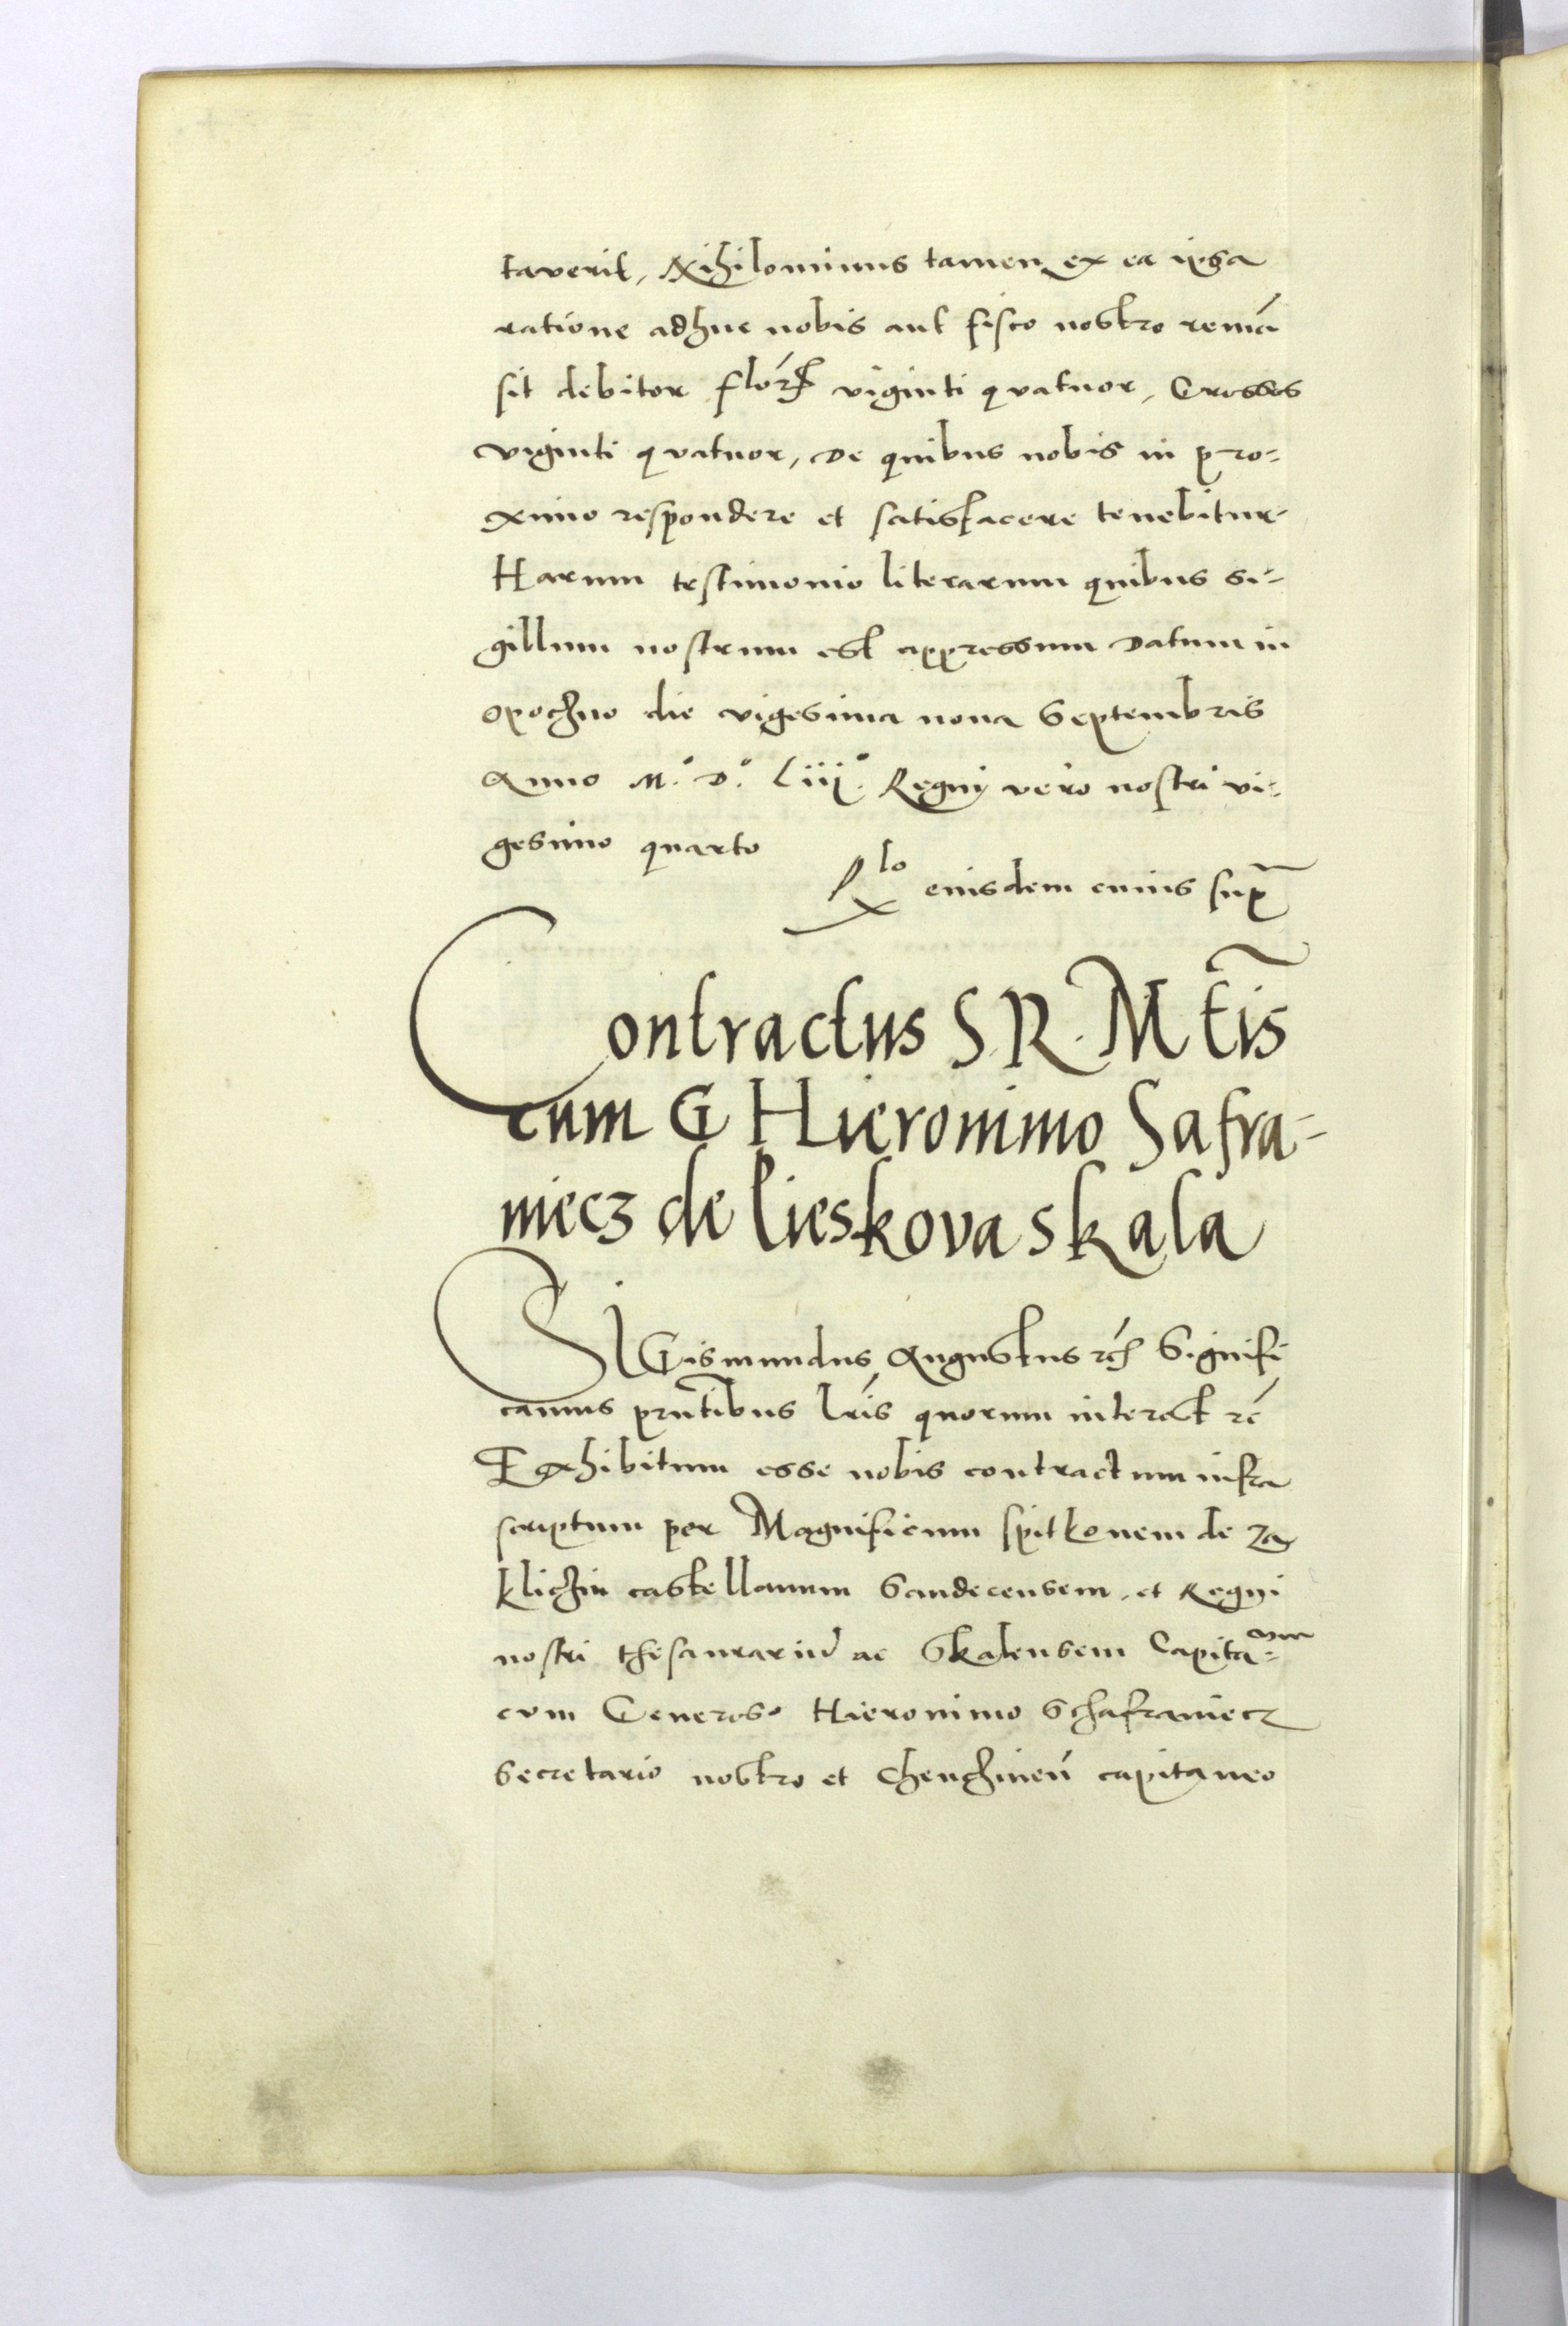 taverit, Nihilominus tamen ex ea ipsa
ratione adhuc nobis aut fisco nostro remā
sit debitor florẽ viginti quatuor, Grossos
viginti quatuor, De quibus nobis in pro-
ximo respondere et satisfacere tenebitur
Harum testimonio literarum quibus si-
gillum nostrum est appressum Datum in
opochno die vigesima nona Septembris
Anno M.° D.° Liii°. Regnj vero nostri vi-
gesimo quarto
Rlo eiusdem cuius supͣ
Contractus S. R. Mt̃is
cum G Hieronimo Safra-
niecz de Pieskova skala
SIGismundus Augustus rc̃ Signifi
camus prñtibus lr̃is quorum interest rc̃
Exhibitum esse nobis contractum infra
scriptum per Magnificum Spitkonem de za
klichin castellanum Sandecensem, et Regni
nostri thesaurariũ ac Skalensem Capita-
neum
cum Generoso Hieronimo Schafraniecz
Secretario nostro et Chenchineñ capitaneo